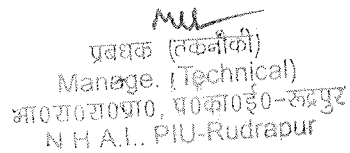 प्रबंधक (तकनीकी)
Manage. (Technical)
भा०रा०रा०प्रा०, प०का०ई०-रूद्रपुर
N.H.A.I.. PIU-Rudrapur